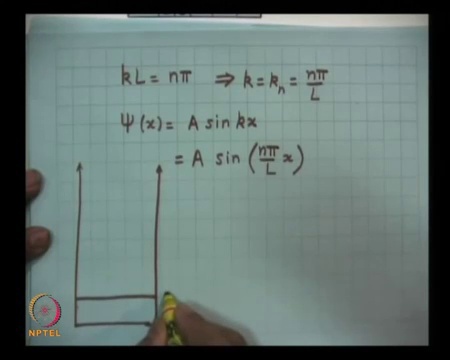 kL = nπ ⇒ k = kₙ = nπ/L
Ψ(x) = A sin kx
= A sin (nπ/L x)
NPTEL